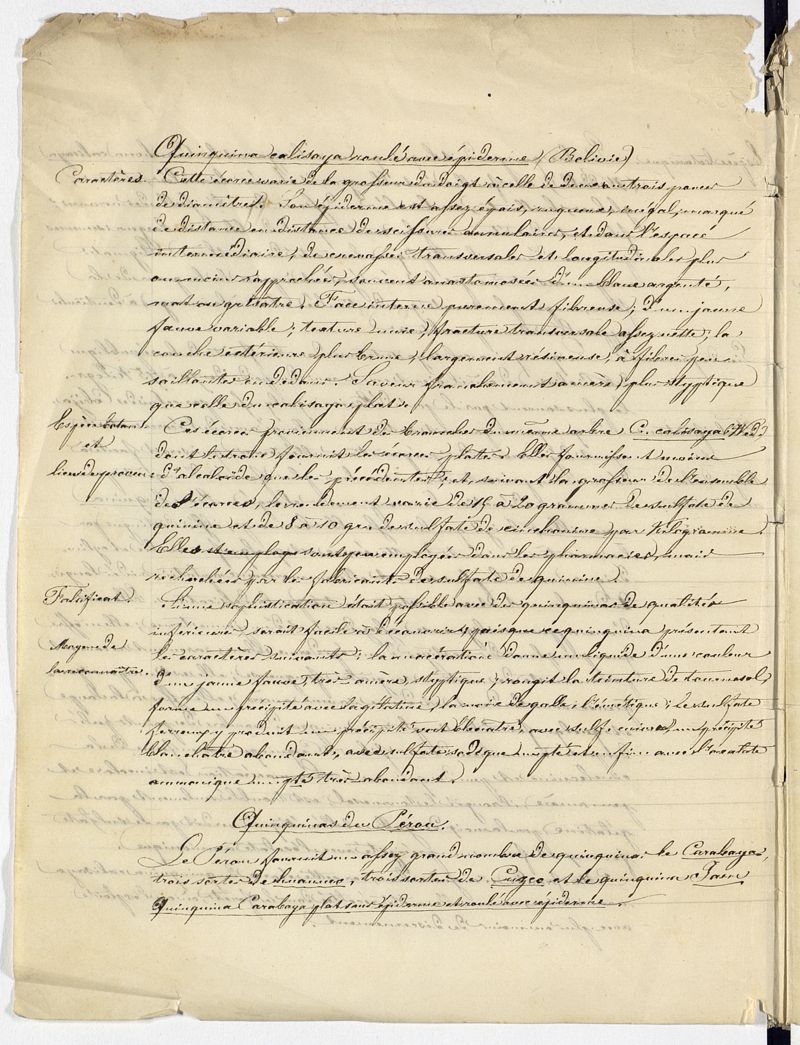 Quinquina calisaya roulé avec épiderme (Bolivie)
Caractères. Cette écorce varie de la grosseur du doigt à celle de deux ou trois pouces
de diamètre. Son épiderme est assez épais, rugueux, inégal, marqué
de distance en distance de scissures annulaires, et dans l'espace
intermédiaire, de crevasses transversales et longitudinales plus
ou moins rapprochées, souvent anastomosées d'un blanc argenté,
mat ou grisâtre. Face interne purement fibreuse, d'un jaune
fauve variable, texture unie, fracture transversale assez nette, la
couche extérieure plus brune, largement résineuse, à fibres peu
saillantes en dedans. Saveur franchement amère, plus styptique
que celle du calisaya plat.
Espèce botan.
et
lieux de proven.
Ces écorces proviennent de branches du même arbre C. calisaya (Wed)
dont le tronc fournit les écorces plates. Elles fournissent moins
d'alcaloïde que les précédentes, et, suivant la grosseur de l'ensemble
des écorces, le rendement varie de 15 à 20 grammes de sulfate de
quinine et de 8 à 10 gr de sulfate de cinchonine par Kilogramme.
Elles sont peu employées dans les pharmacies, mais
recherchées par les fabricants de sulfate de quinine.
Falsificat.
Si une sophistication était possible avec des quinquinas de qualités
inférieures, serait facile à découvrir, puisque ce quinquina présentant
Moyens de
la reconnaître.
les caractères suivants: la macération donne un liquide d'une couleur
d'un jaune fauve, très amère, styptique, rougit la teinture de tournesol,
forme un précipité avec la gélatine, la noix de galle, l'émétique; le sulfate
ferroux y produit un précipité vert bleuâtre, avec sulf. cuivreux un précipité
blanchâtre abondant, avec sulfate sodique un pté et enfin avec l'oxalate
ammonique un pté très abondant.
Quinquinas du Pérou.
Le Pérou fournit un assez grand nombre de quinquinas le Carabaya,
trois sortes de huanuco, trois sortes de Cuzco et le quinquina Jaen
Quinquina Carabaya plat sans épiderme et roulé avec épiderme.